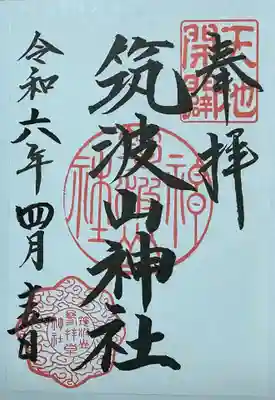 奉拝
天地開闢
筑波山神社
令和六年四月十五日